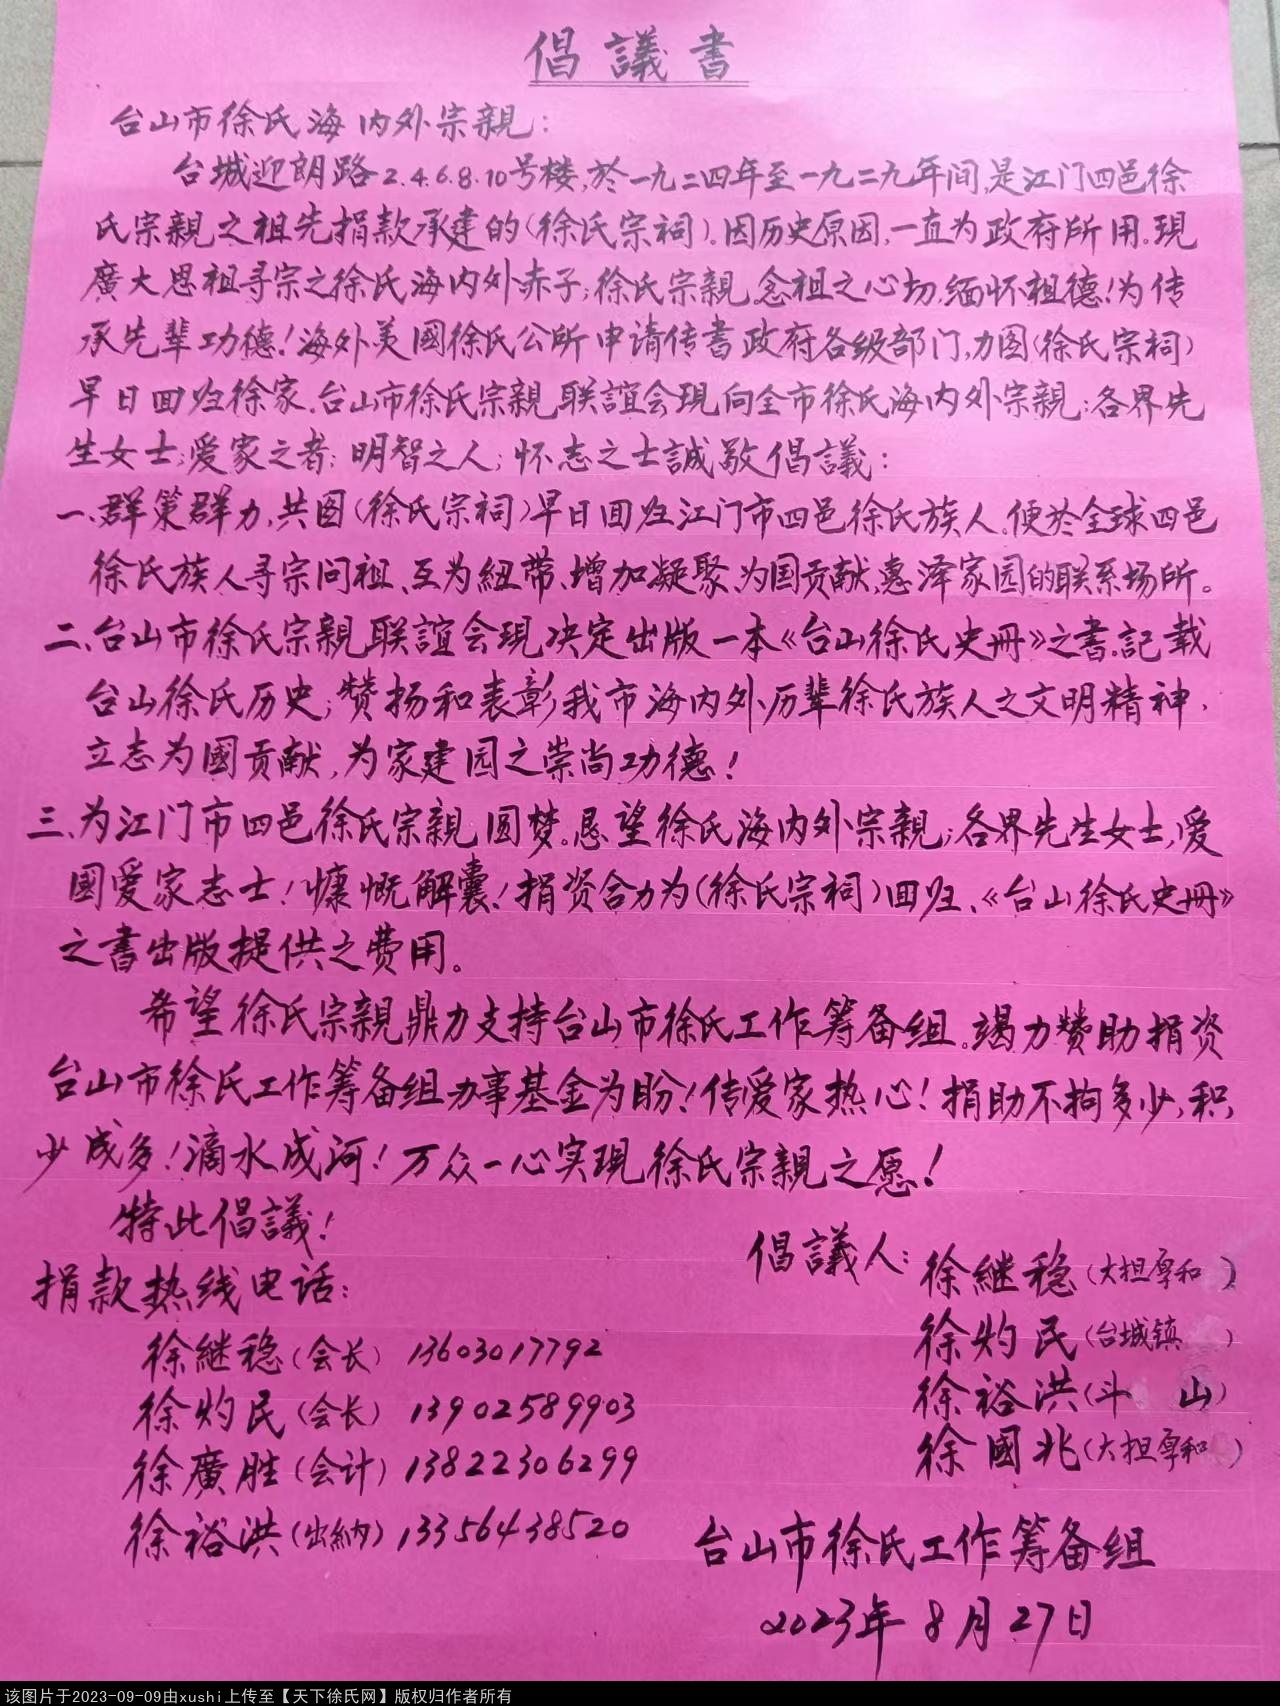 倡議書
台山市徐氏海内外宗親：
台城迎朗路2.4.6.8.10号楼,於一九二四年至一九二九年间,是江门四邑徐
氏宗親之祖先捐款承建的(徐氏宗祠)。因历史原因,一直为政府所用。現
廣大思祖寻宗之徐氏海内外赤子;徐氏宗親,念祖之心切,缅怀祖德!为传
承先辈功德!海外美國徐氏公所申请传書政府各级部门,力图(徐氏宗祠)
早日回归徐家。台山市徐氏宗親联誼会現向全市徐氏海内外宗親;各界先
生女士;爱家之者;明智之人;怀志之士誠敬倡議:
一、群策群力,共图(徐氏宗祠)早日回归江门市四邑徐氏族人,便於全球四邑
徐氏族人寻宗问祖、互为紐带、增加凝聚、为国贡献,惠泽家园的联系场所。
二、台山市徐氏宗親联誼会現决定出版一本《台山徐氏史冊》之書,記载
台山徐氏历史;赞扬和表彰我市海内外历辈徐氏族人之文明精神,
立志为國贡献,为家建园之崇尚功德!
三、为江门市四邑徐氏宗親圆梦。恳望徐氏海内外宗親;各界先生女士,爱
國爱家志士!慷慨解囊!捐资合力为(徐氏宗祠)回归、《台山徐氏史冊》
之書出版提供之费用。
希望徐氏宗親鼎力支持台山市徐氏工作筹备组。竭力赞助捐资
台山市徐氏工作筹备组办事基金为盼!传爱家热心!捐助不拘多少,积
少成多!滴水成河!万众一心实現徐氏宗親之愿!
特此倡議!
倡議人:徐継稳(大担厚和)
徐灼民(台城镇)
徐裕洪(斗山)
徐國兆(大担厚和)
捐款热线电话:
徐継稳(会长) 13603017792
徐灼民(会长) 13902589903
徐廣胜(会计) 13822306299
徐裕洪(出納) 13356438520
台山市徐氏工作筹备组
2023年8月27日
该图片于2023-09-09由xushi上传至【天下徐氏网】版权归作者所有